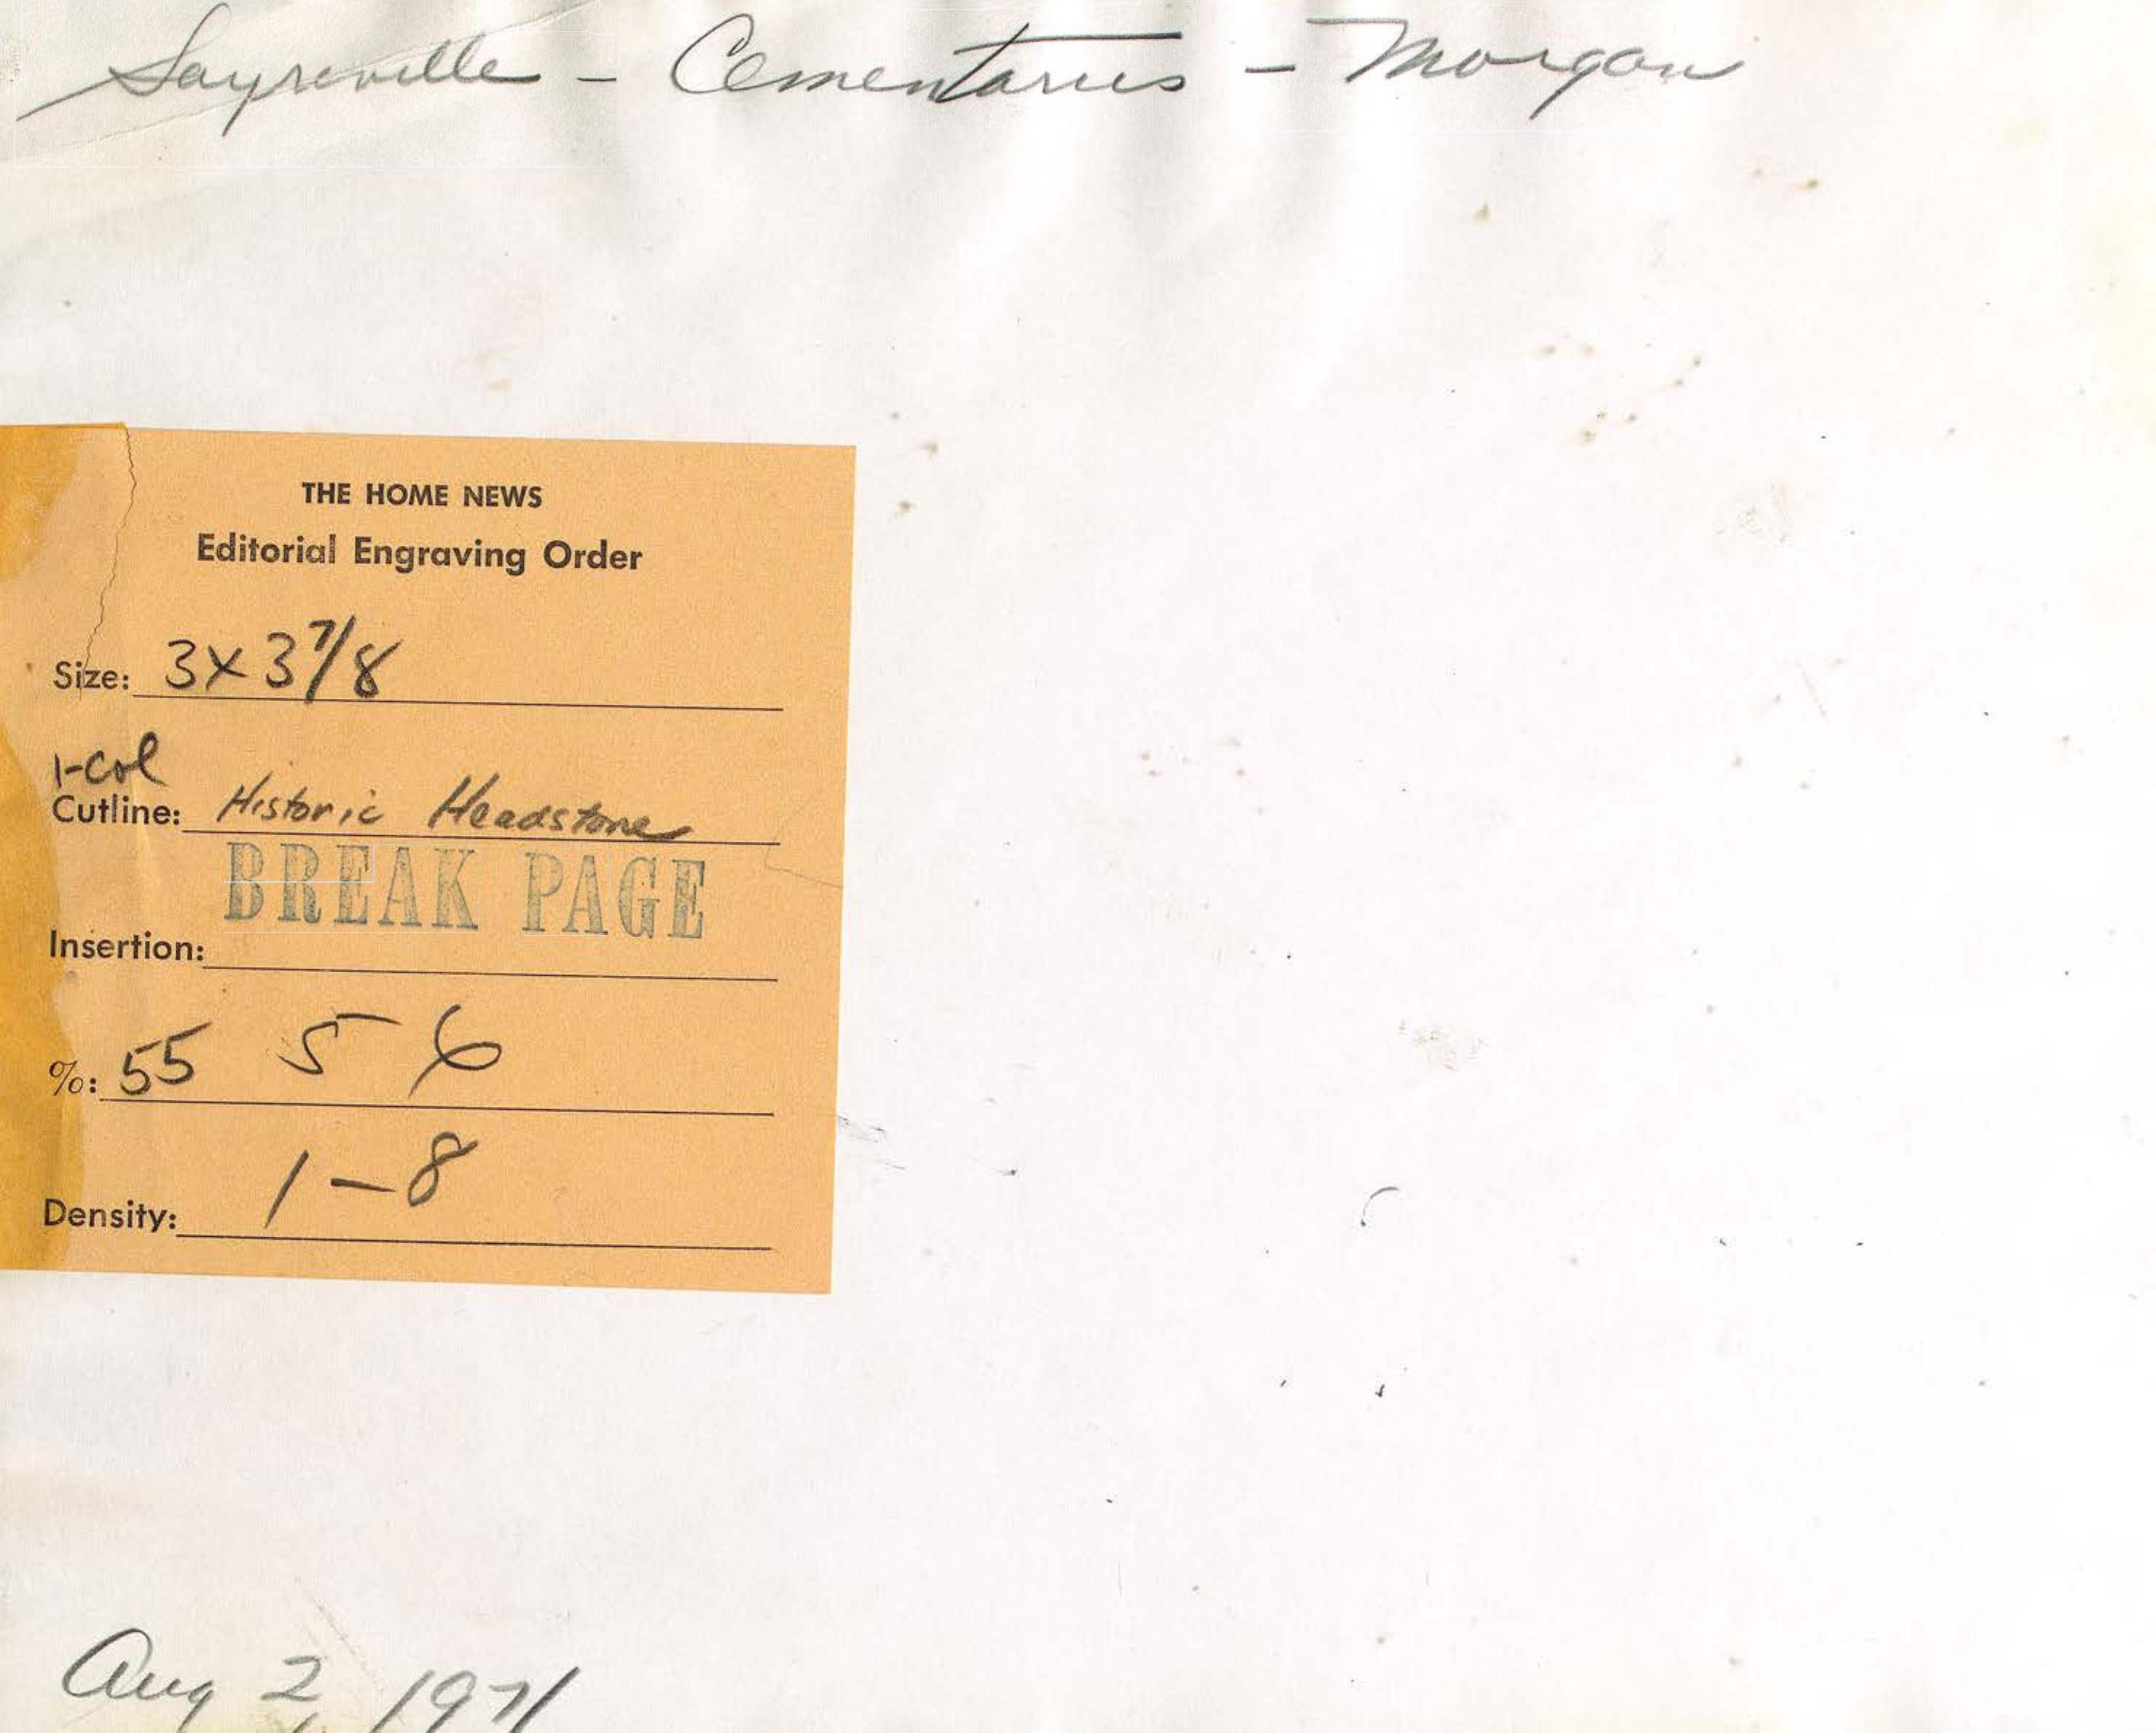 Sayreville - Cementaries - Morgan
THE HOME NEWS
Editorial Engraving Order
Size: 3x3 7/8
1-col
Cutline: Historic Headstone
BREAK PAGE
Insertion:
%: 55 5 6
1-8
Density:
Aug 2, 1971